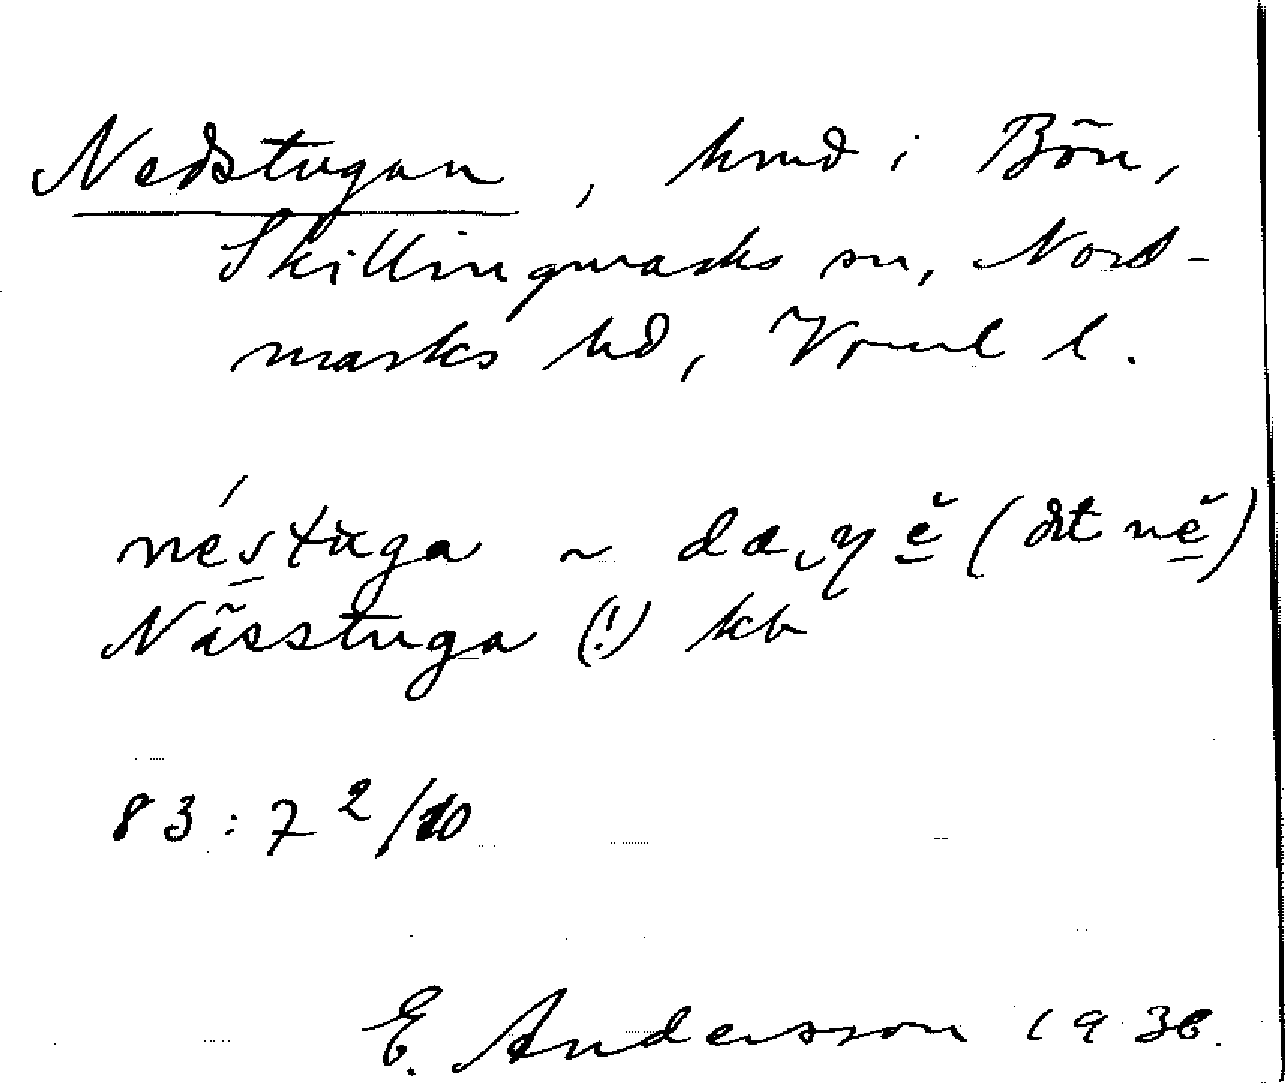 Nedstugan, hmd i Bön,
Skillingmarks sn, Nord-
marks hd, Vrml l.
néstuga ~ da (dit ne)
Nässtuga (!) kb
83:7 2/10
E. Andersson 1936.